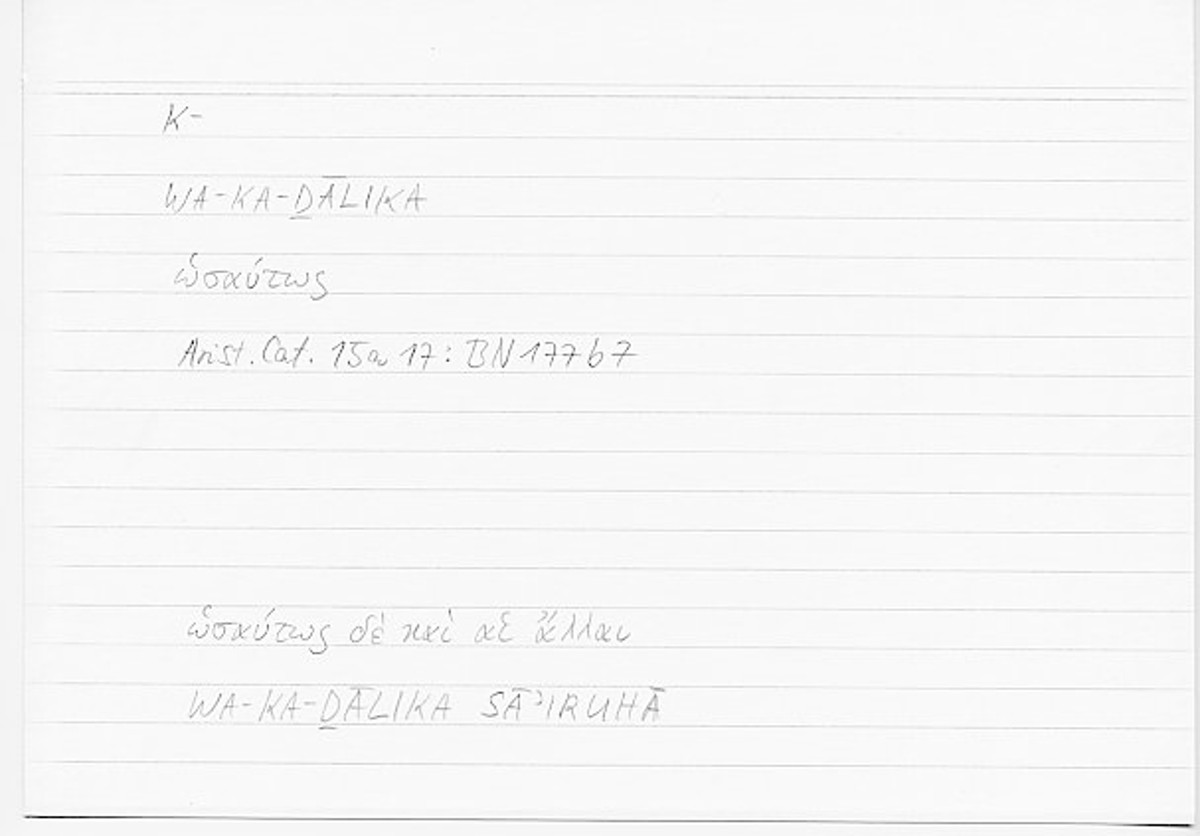 K-
WA-KA-ḎĀLIKA
ὡσαύτως
Arist. Cat. 15a 17: BN 177b7
ὡσαύτως δὲ καὶ αἱ ἄλλαι
WA-KA-ḎĀLIKA SĀʾIRUHĀ